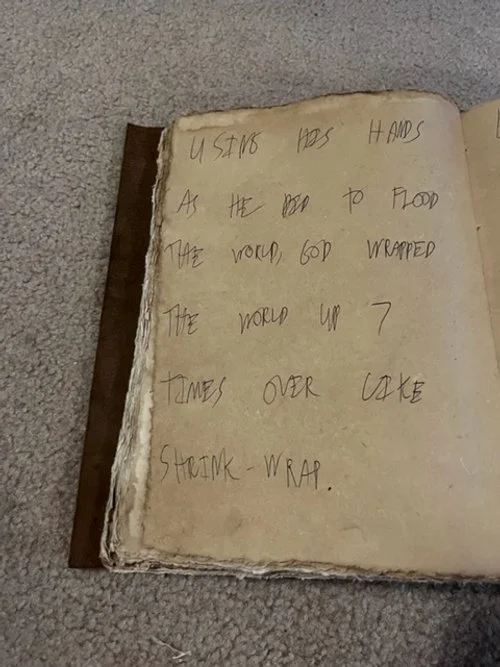 USING HIS HANDS
AS HE DID TO FLOOD
THE WORLD, GOD WRAPPED
THE WORLD UP 7
TIMES OVER LIKE
SHRINK-WRAP.